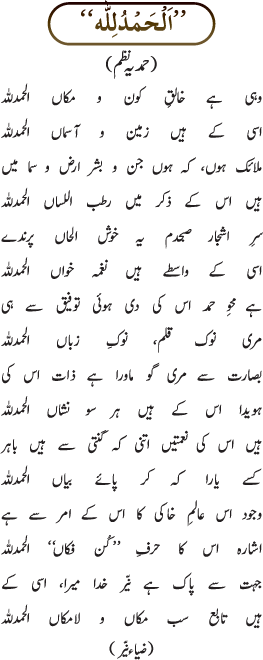 ’’اَلْحَمْدُلِلّٰہ‘‘
(حمدیہ نظم)
وہی ہے خالقِ کون و مکاں الحمدللہ
اسی کے ہیں زمین و آسماں الحمدللہ
ملائک ہوں، کہ ہوں جن و بشر ارض و سما میں
ہیں اس کے ذکر میں رطب اللساں الحمدللہ
سرِ اشجار صبحدم یہ خوش الحاں پرندے
اسی کے واسطے ہیں نغمہ خواں الحمدللہ
ہے محوِ حمد اس کی دی ہوئی توفیق سے ہی
مری نوک قلم، نوکِ زباں الحمدللہ
بصارت سے مری گو ماورا ہے ذات اس کی
ہویدا اس کے ہیں ہر سو نشاں الحمدللہ
ہیں اس کی نعمتیں اتنی کہ گنتی سے ہیں باہر
کسے یارا کہ کر پائے بیاں الحمدللہ
وجود اس عالمِ خاکی کا اس کے امر سے ہے
اشارہ اس کا حرفِ ’’کُن فکاں‘‘ الحمدللہ
جہت سے پاک ہے نیّر خدا میرا، اسی کے
ہیں تابع سب مکاں و لامکاں الحمدللہ
(ضیاء نیّر)